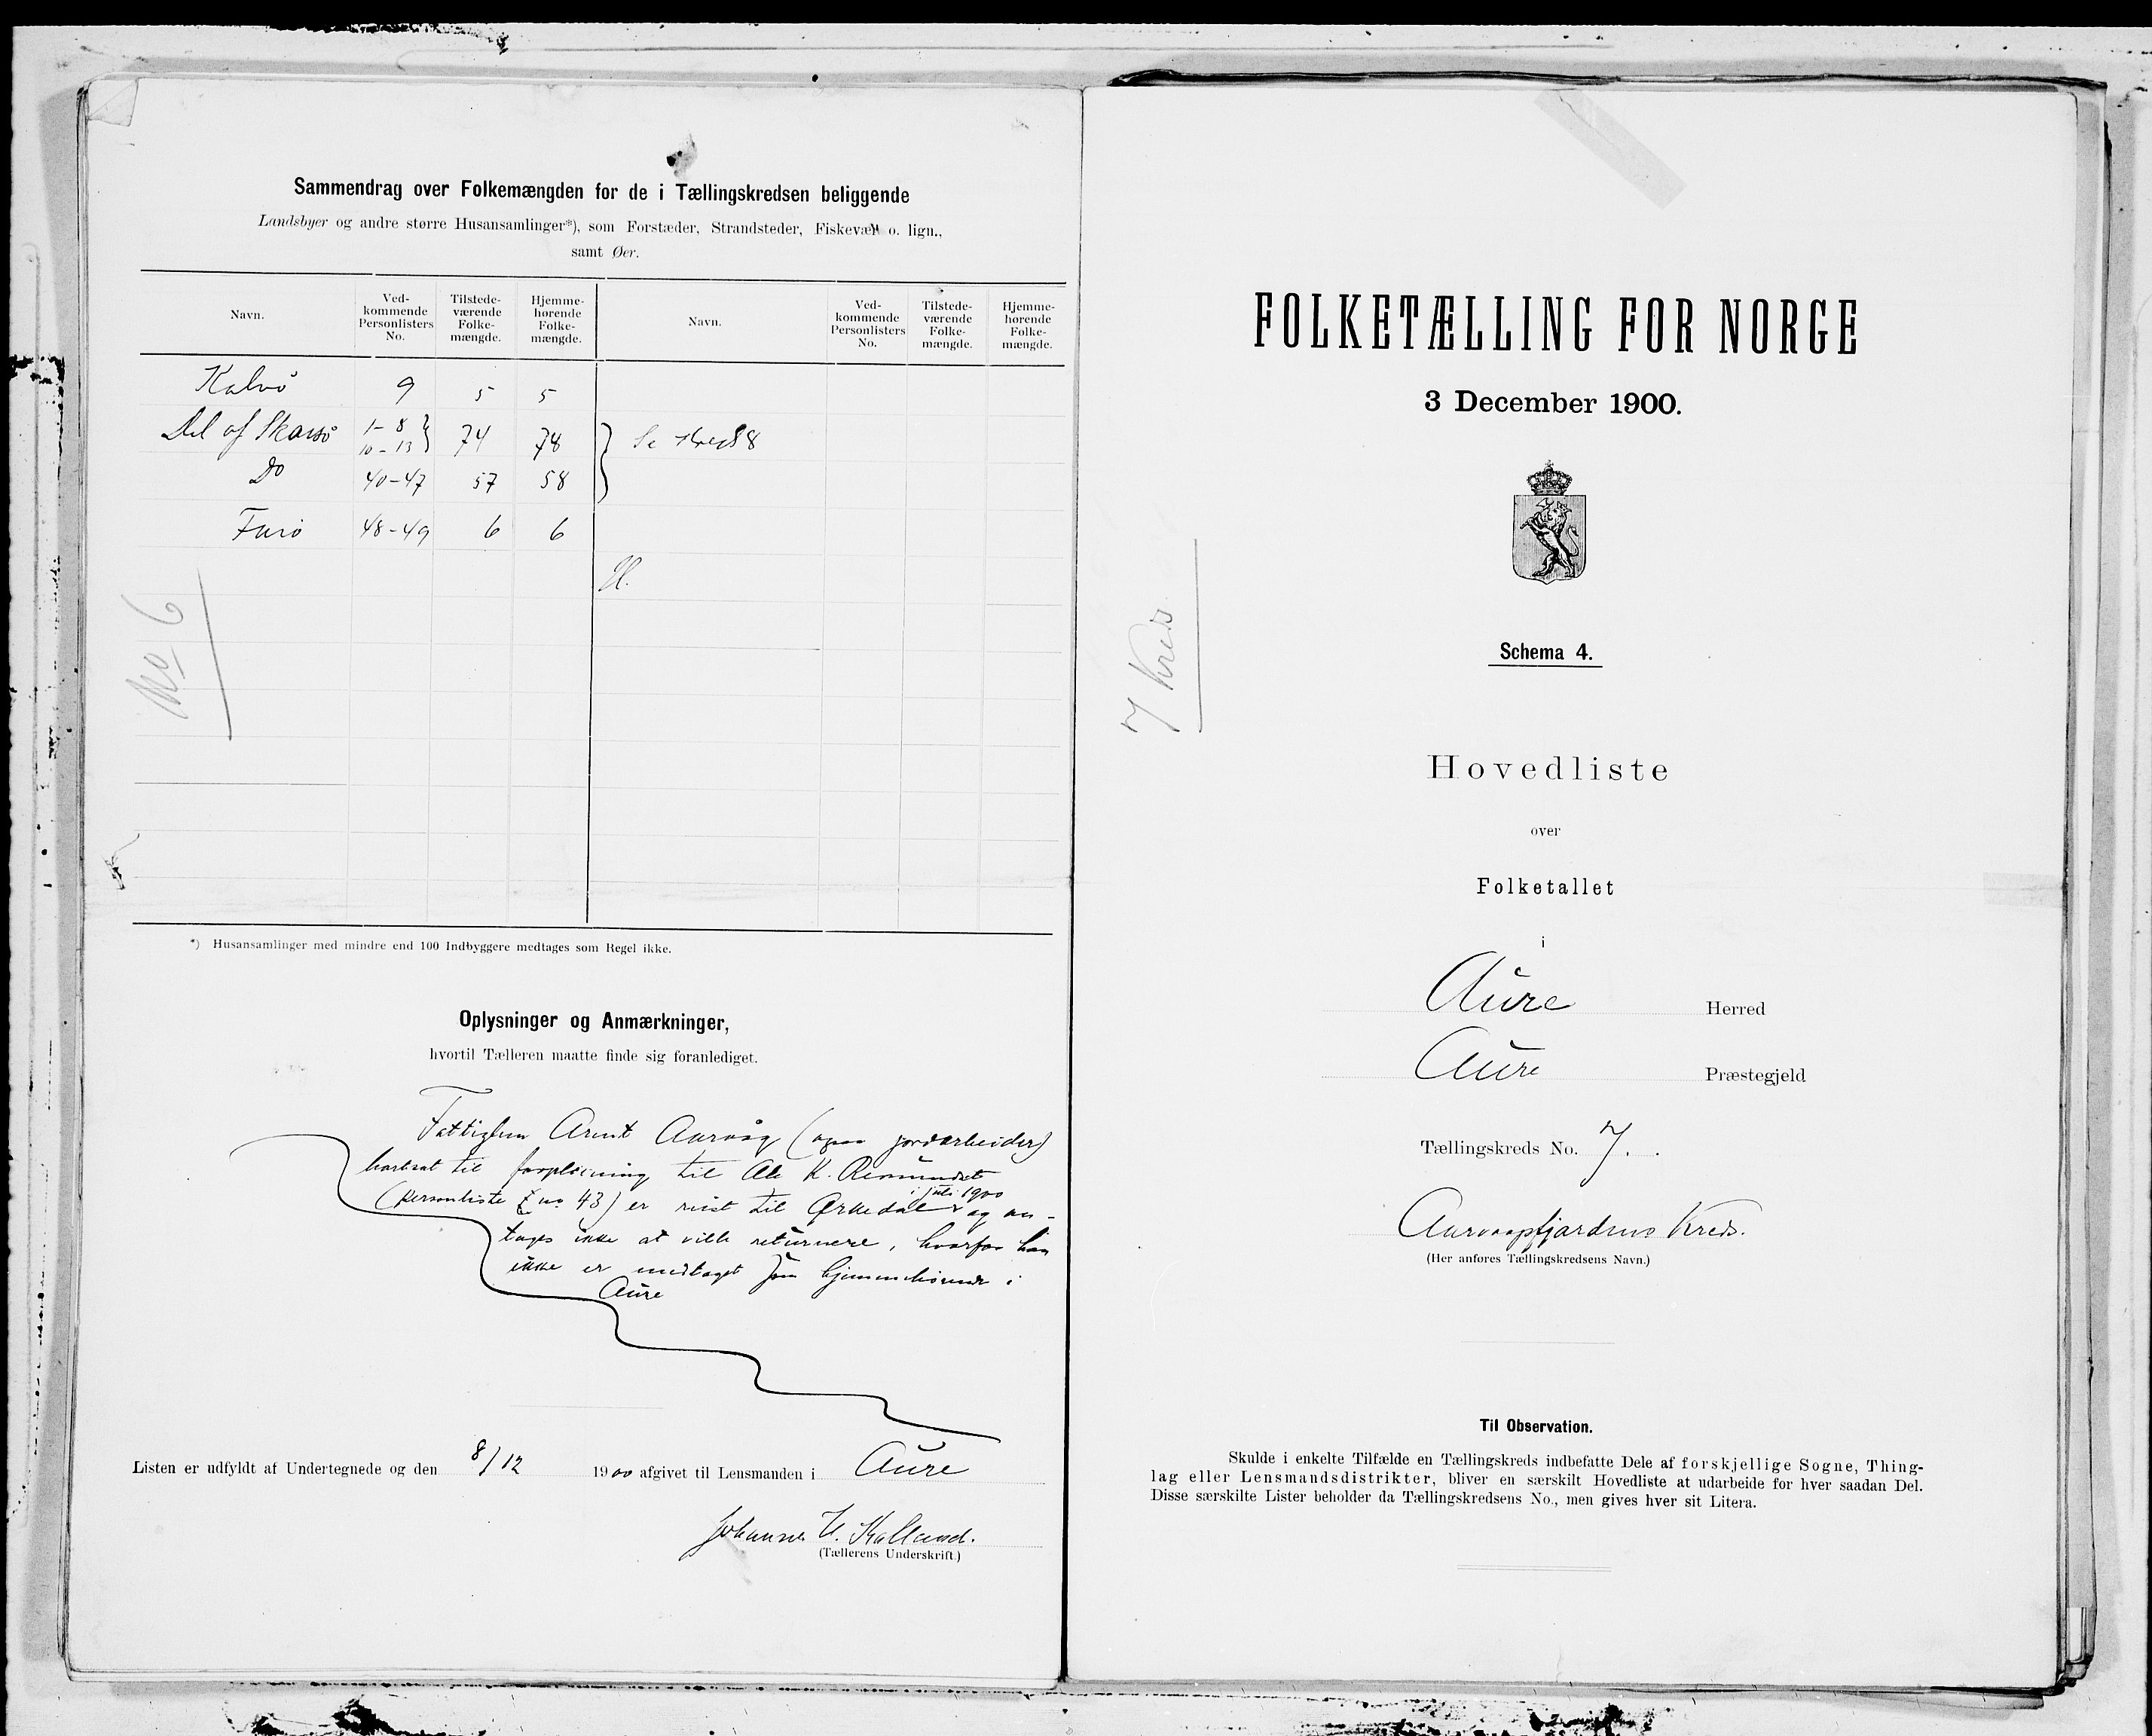 Sammendrag over Folkemængden for de i Tællingskredsen beliggende
Landsbyer og andre større Husansamlinger*), som Forstæder, Strandsteder, Fiskevær o. lign.,
samt Øer.
Navn. Ved-kommende Personlisters No. Tilstede-værende Folke-mængde. Hjemme-hørende Folke-mængde. Navn. Ved-kommende Personlisters No. Tilstede-værende Folke-mængde. Hjemme-hørende Folke-mængde.
Kalvö 9 5 5
Del af Skarsö 1-8 10-13 74 78 Se Kreds 8
Do 40-47 57 58
Furö 48-49 6 6
No 6
*) Husansamlinger med mindre end 100 Indbyggere medtages som Regel ikke.
Oplysninger og Anmærkninger,
hvortil Tælleren maatte finde sig foranlediget.
Fattiglem Arnt Aarvåg (ogsaa jordarbeider)
bortsat til forpleining til Ale K.
(personliste no. 43) er reist til Ørkedal i juli 1900 og an-
tages ikke at ville returnere, hvorfor han
ikke er medtaget som hjemmehørende i
Aure
Listen er udfyldt af Undertegnede og den 8/12 1900 afgivet til Lensmanden i Aure
Johannes H. Kalland.
(Tællerens Underskrift.)
7 Kreds
FOLKETÆLLING FOR NORGE
3 December 1900.
Schema 4.
Hovedliste
over
Folketallet
i
Aure Herred
Aure Præstegjeld
Tællingskreds No. 7.
Aarvaagsfjordens Kreds.
(Her anføres Tællingskredsens Navn.)
Til Observation.
Skulde i enkelte Tilfælde en Tællingskreds indbefatte Dele af forskjellige Sogne, Thing-
lag eller Lensmandsdistrikter, bliver en særskilt Hovedliste at udarbeide for hver saadan Del.
Disse særskilte Lister beholder da Tællingskredsens No., men gives hver sit Litera.